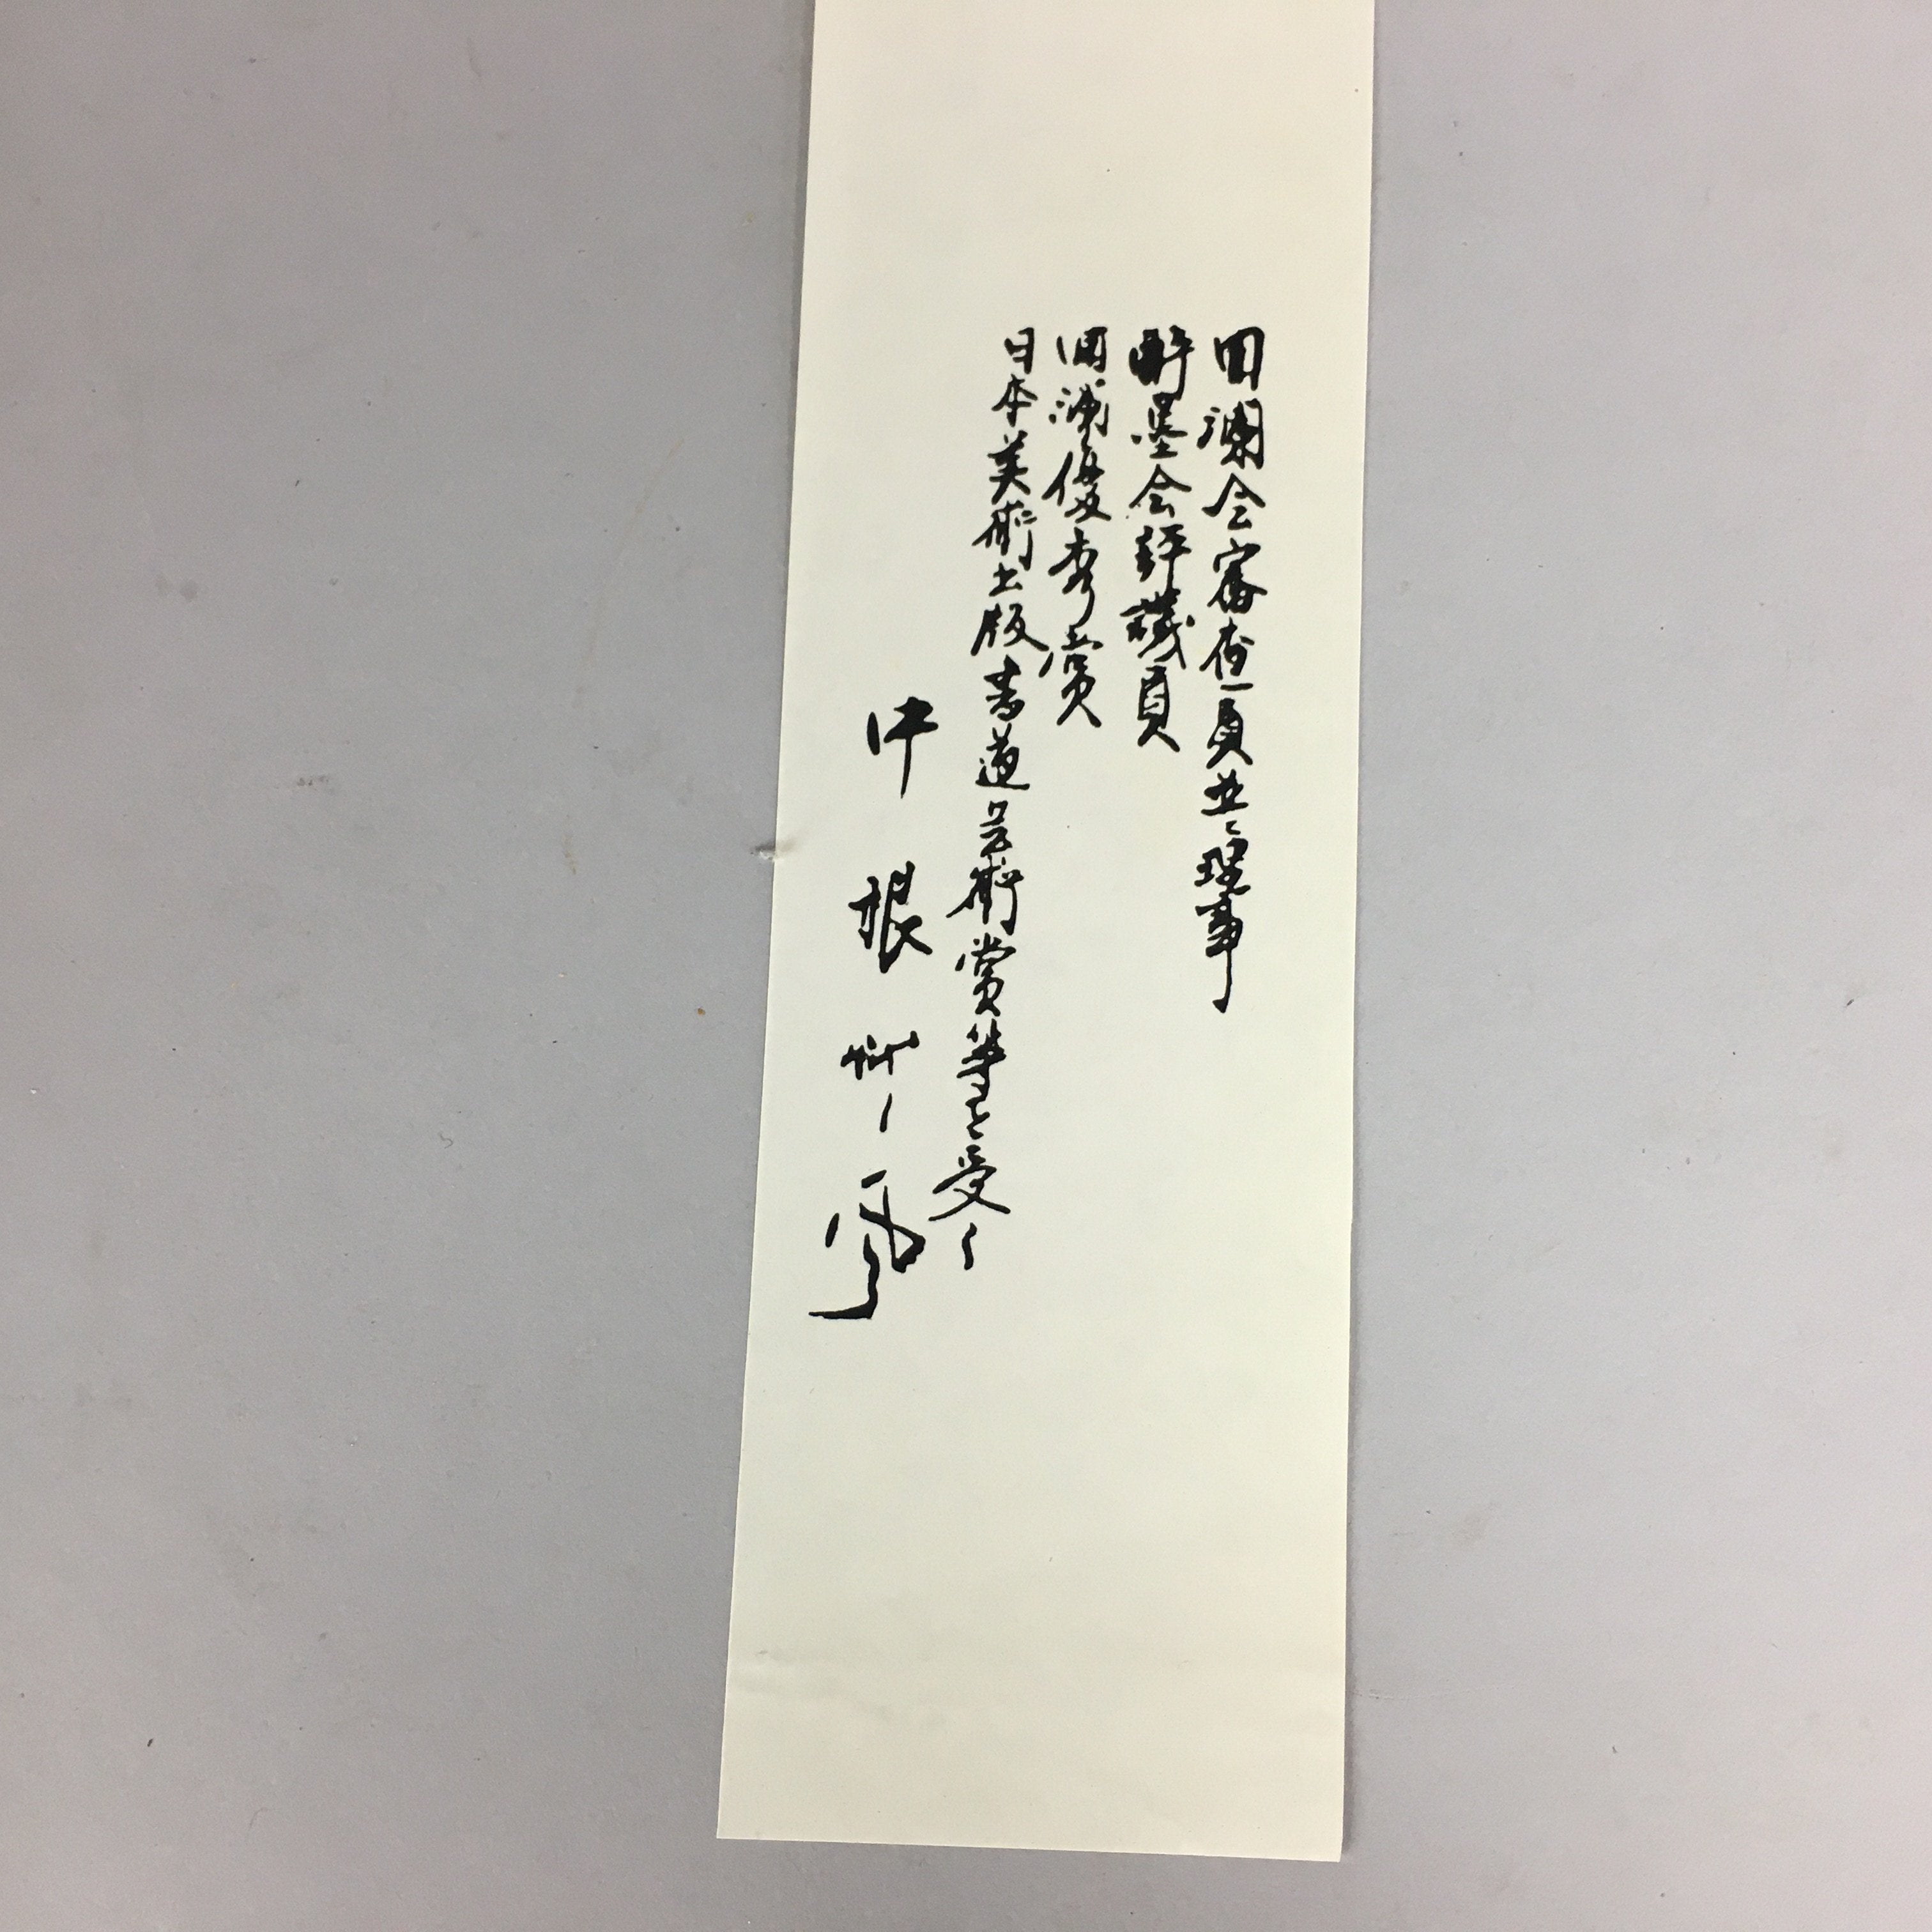 回瀾会審査員並に理事
酔墨会評議員
回瀾優秀賞
日本美術出版書道芸術賞等を受く
中根